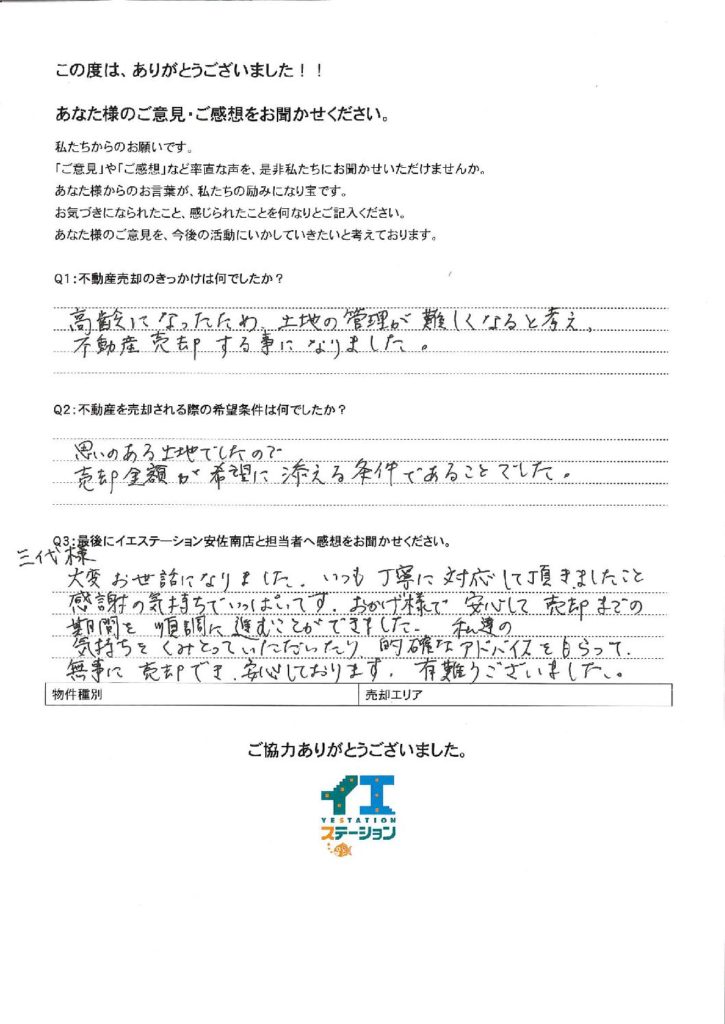 この度は、ありがとうございました！！
あなた様のご意見・ご感想をお聞かせください。
私たちからのお願いです。
「ご意見」や「ご感想」など率直な声を、是非私たちにお聞かせいただけませんか。
あなた様からのお言葉が、私たちの励みになり宝です。
お気づきになられたこと、感じられたことを何なりとご記入ください。
あなた様のご意見を、今後の活動にいかしていきたいと考えております。
Q1：不動産売却のきっかけは何でしたか？
高齢になったため、土地の管理が難しくなると考え、
不動産売却する事になりました。
Q2：不動産を売却される際の希望条件は何でしたか？
思いのある土地でしたので
売却金額が希望に添える条件であることでした。
Q3：最後にイエステーション安佐南店と担当者へ感想をお聞かせください。
三代様
大変お世話になりました。いつも丁寧に対応して頂きましたこと
感謝の気持ちでいっぱいです。おかげ様で安心して売却までの
期間を順調に進むことができました。私達の
気持ちをくみとっていただいたり、的確なアドバイスをもらって、
無事に売却でき、安心しております。有難うございました。
物件種別
売却エリア
ご協力ありがとうございました。
イエ
YESTATION
ステーション